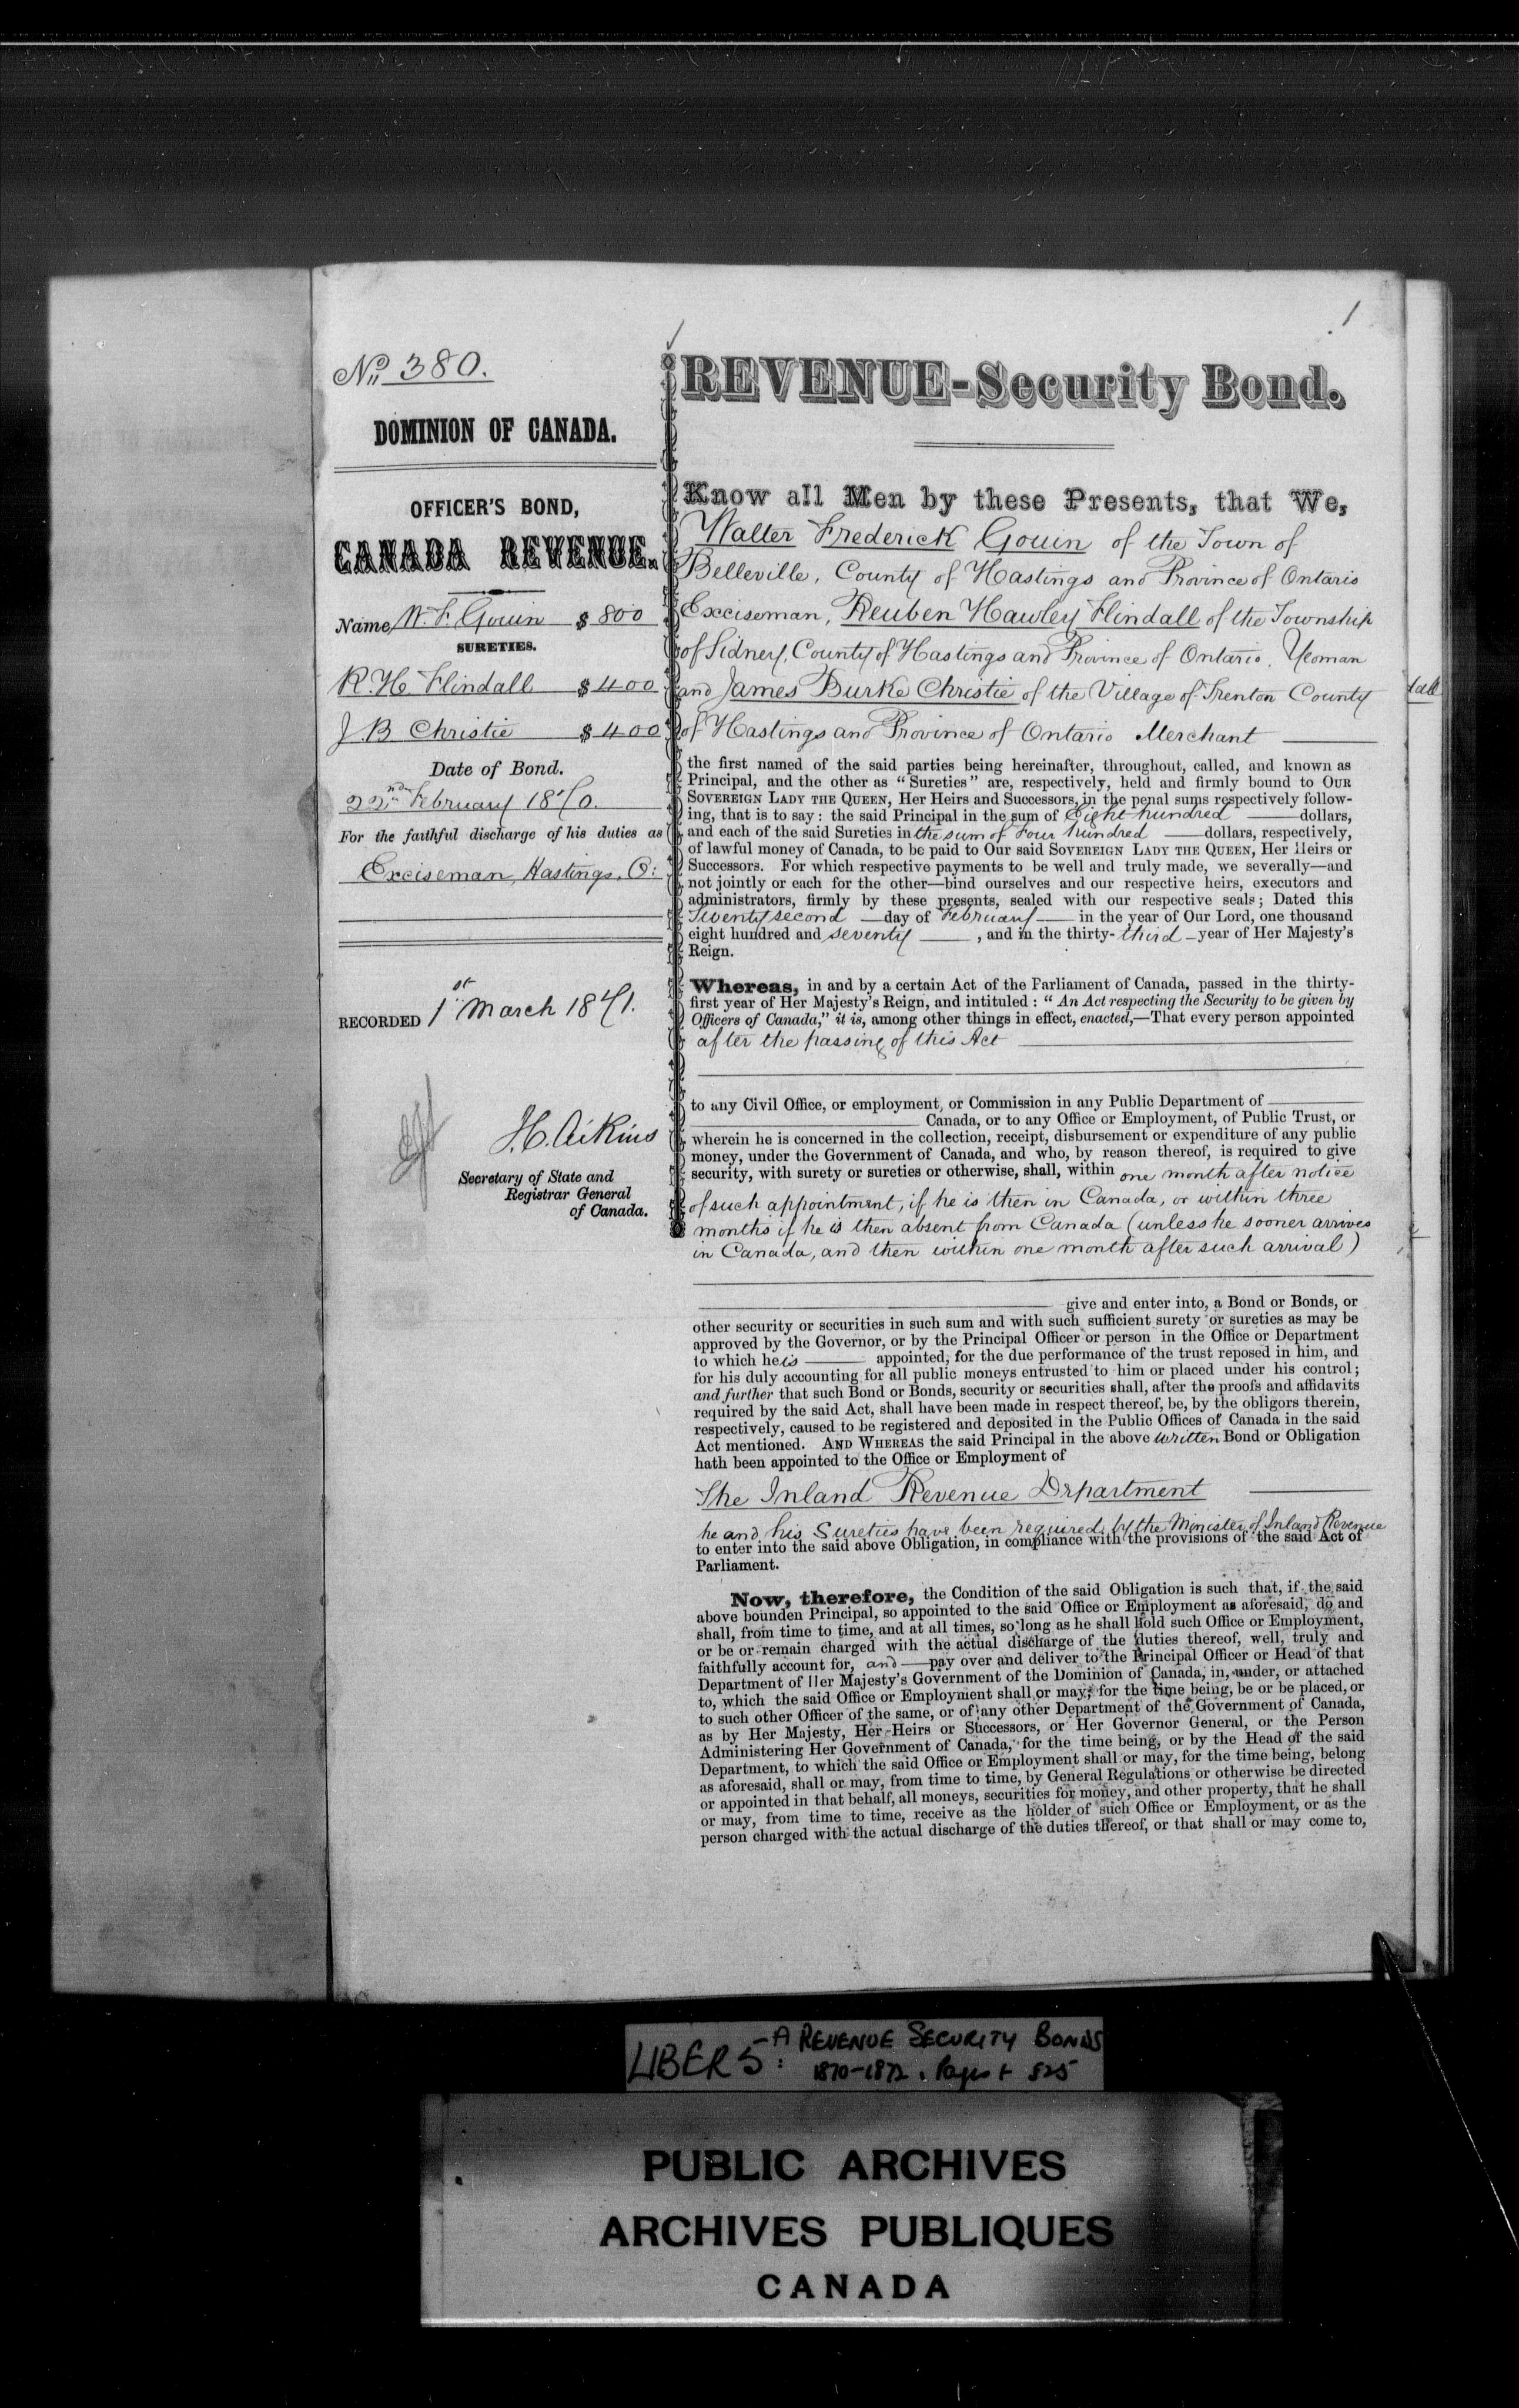 1
No 380.
DOMINION OF CANADA.
OFFICER'S BOND,
CANADA REVENUE.
Name W. F. Gouin $ 800
SURETIES.
R. H. Flindall $ 400
J. B Christie $ 400
Date of Bond.
22nd February 1870.
For the faithful discharge of his duties as
Exciseman, Hastings, O:
RECORDED 1st March 1871.
J. C. Aikins
Secretary of State and
Registrar General
of Canada.
REVENUE-Security Bond.
Know all Men by these Presents, that We,
Walter Frederick Gouin of the Town of
Belleville, County of Hastings and Province of Ontario
Exciseman, Reuben Hawley Flindall of the Township
of Sidney, County of Hastings and Province of Ontario, Yeoman
and James Burke Christie of the Village of Trenton County
of Hastings and Province of Ontario Merchant
the first named of the said parties being hereinafter, throughout, called, and known as
Principal, and the other as "Sureties" are, respectively, held and firmly bound to OUR
SOVEREIGN LADY THE QUEEN, Her Heirs and Successors, in the penal sums respectively follow-
ing, that is to say: the said Principal in the sum of Eight hundred dollars,
and each of the said Sureties in the sum of Four hundred dollars, respectively,
of lawful money of Canada, to be paid to Our said SOVEREIGN LADY THE QUEEN, Her Heirs or
Successors. For which respective payments to be well and truly made, we severally—and
not jointly or each for the other—bind ourselves and our respective heirs, executors and
administrators, firmly by these presents, sealed with our respective seals; Dated this
Twenty second day of February in the year of Our Lord, one thousand
eight hundred and seventy , and in the thirty-third year of Her Majesty's
Reign.
Whereas, in and by a certain Act of the Parliament of Canada, passed in the thirty-
first year of Her Majesty's Reign, and intituled: "An Act respecting the Security to be given by
Officers of Canada," it is, among other things in effect, enacted,—That every person appointed
after the passing of this Act
to any Civil Office, or employment, or Commission in any Public Department of
Canada, or to any Office or Employment, of Public Trust, or
wherein he is concerned in the collection, receipt, disbursement or expenditure of any public
money, under the Government of Canada, and who, by reason thereof, is required to give
security, with surety or sureties or otherwise, shall, within one month after notice
of such appointment, if he is then in Canada, or within three
months if he is then absent from Canada (unless he sooner arrives
in Canada, and then within one month after such arrival)
give and enter into, a Bond or Bonds, or
other security or securities in such sum and with such sufficient surety or sureties as may be
approved by the Governor, or by the Principal Officer or person in the Office or Department
to which he is appointed, for the due performance of the trust reposed in him, and
for his duly accounting for all public moneys entrusted to him or placed under his control;
and further that such Bond or Bonds, security or securities shall, after the proofs and affidavits
required by the said Act, shall have been made in respect thereof, be, by the obligors therein,
respectively, caused to be registered and deposited in the Public Offices of Canada in the said
Act mentioned. AND WHEREAS the said Principal in the above written Bond or Obligation
hath been appointed to the Office or Employment of
The Inland Revenue Department
he and his Sureties have been required, by the Minister of Inland Revenue
to enter into the said above Obligation, in compliance with the provisions of the said Act of
Parliament.
Now, therefore, the Condition of the said Obligation is such that, if the said
above bounden Principal, so appointed to the said Office or Employment as aforesaid, do and
shall, from time to time, and at all times, so long as he shall hold such Office or Employment,
or be or remain charged with the actual discharge of the duties thereof, well, truly and
faithfully account for, and pay over and deliver to the Principal Officer or Head of that
Department of Her Majesty's Government of the Dominion of Canada, in, under, or attached
to, which the said Office or Employment shall or may, for the time being, be or be placed, or
to such other Officer of the same, or of any other Department of the Government of Canada,
as by Her Majesty, Her Heirs or Successors, or Her Governor General, or the Person
Administering Her Government of Canada, for the time being, or by the Head of the said
Department, to which the said Office or Employment shall or may, for the time being, belong
as aforesaid, shall or may, from time to time, by General Regulations or otherwise be directed
or appointed in that behalf, all moneys, securities for money, and other property, that he shall
or may, from time to time, receive as the holder of such Office or Employment, or as the
person charged with the actual discharge of the duties thereof, or that shall or may come to,
LIBER 5-A REVENUE SECURITY BONDS
1870-1872. Pages 1- 525
PUBLIC ARCHIVES
ARCHIVES PUBLIQUES
CANADA